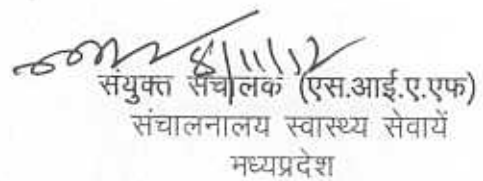 8/11/12
संयुक्त संचालक (एस.आई.ए.एफ)
संचालनालय स्वास्थ्य सेवायें
मध्यप्रदेश